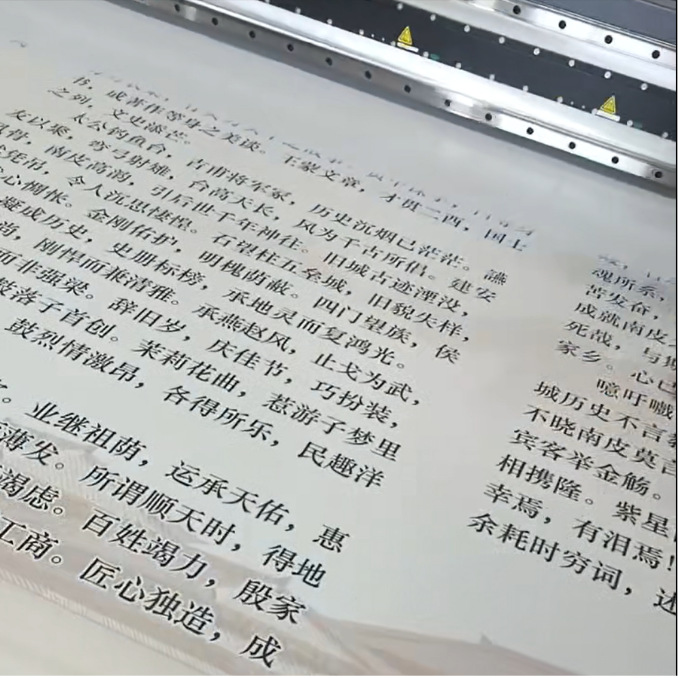 书，或著作等身之美谈。王蒙文章，才贯二酉，国士
之列，文史漭茫。
太公钓鱼台，古甫将军冢，历史沉烟已茫茫。讌
友以乘，弯弓射雉，台高天长，风为千古所借。建安
南皮高韵，引后世千年神往。旧城古迹湮没，
凭吊，令人沉思悽惶。石望柱五垒城，旧貌失样，
心惆怅。金刚佑护，明槐荫蔽。四门望族，侯
凝成历史，史册标榜，承地灵而复鸿光。
尚，刚悍而兼清雅。承燕赵风，止戈为武，
而非强梁。辞旧岁，庆佳节，巧扮装，
落子首创。茉莉花曲，惹游子梦里
鼓烈情激昂，各得所乐，民趣洋
业继祖荫，运承天佑，惠
薄发。所谓顺天时，得地
竭虑。百姓竭力，殷家
工商。匠心独造，成
魂所系，
苦发奋，
成就南皮
死哉，与
家乡。心已
噫吁嚱
城历史不言
不晓南皮莫言
宾客举金觞。
相携隆。紫星
幸焉，有泪焉！
余耗时穷词，述